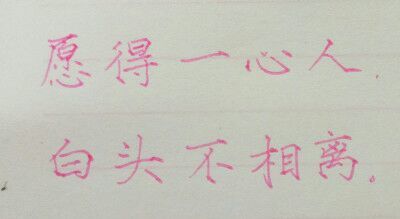 愿得一心人.
白头不相离.